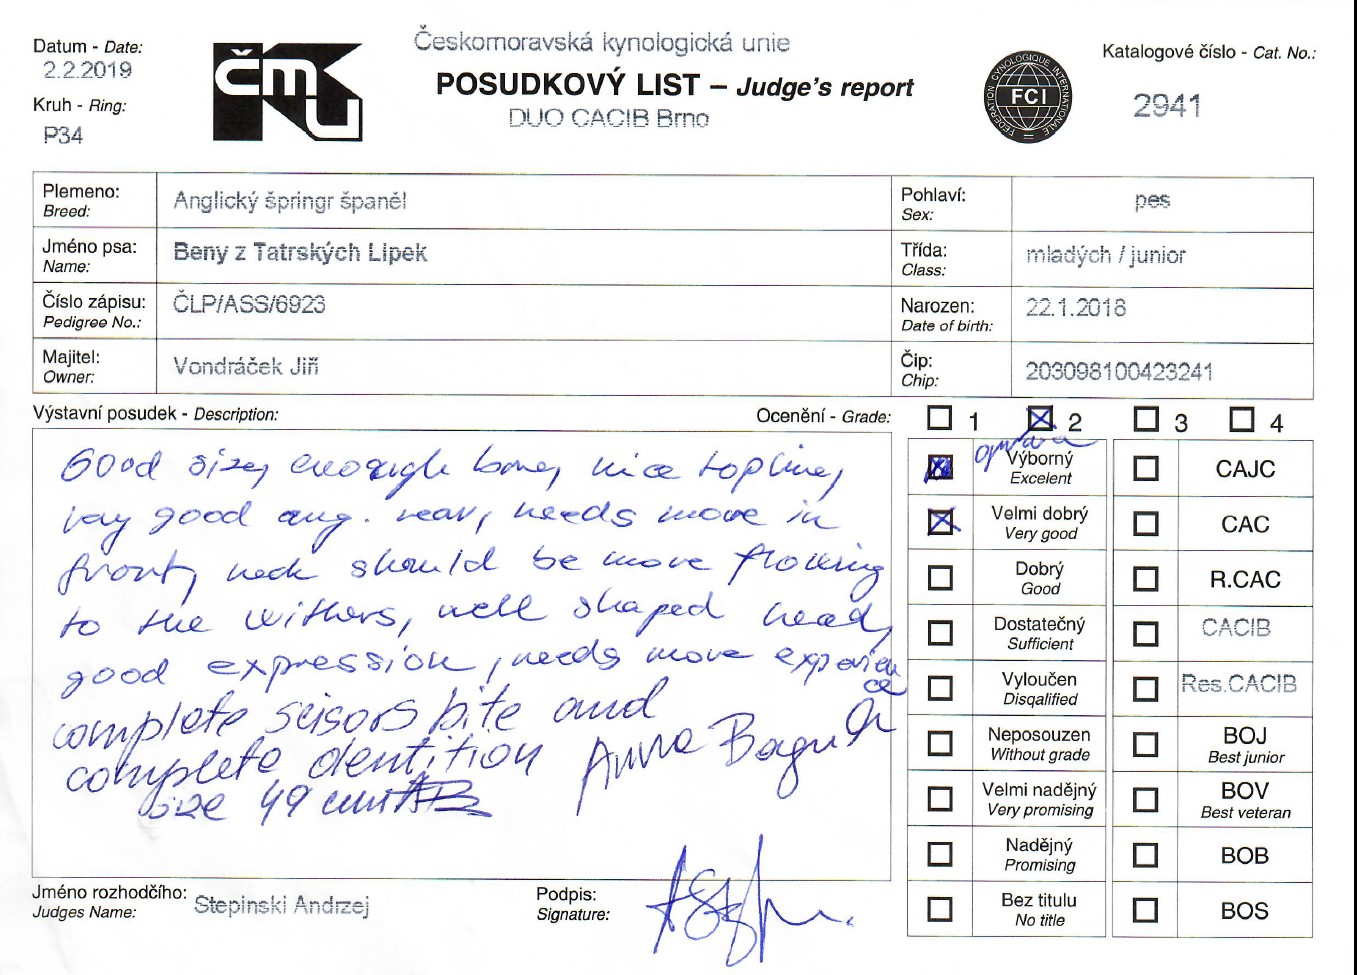 Datum - Date:
2.2.2019
Kruh - Ring:
P34
ČMKU
Českomoravská kynologická unie
POSUDKOVÝ LIST – Judge's report
DUO CACIB Brno
FEDERATION CYNOLOGIQUE INTERNATIONALE
FCI
Katalogové číslo - Cat. No.:
2941
Plemeno:
Breed:
Anglický špringr španěl
Pohlaví:
Sex:
pes
Jméno psa:
Name:
Beny z Tatrských Lipek
Třída:
Class:
mladých / junior
Číslo zápisu:
Pedigree No.:
ČLP/ASS/6923
Narozen:
Date of birth:
22.1.2018
Majitel:
Owner:
Vondráček Jiří
Čip:
Chip:
203098100423241
Výstavní posudek - Description:
Ocenění - Grade:
1 2 3 4
Good size, enough bone, nice topline,
very good ang. rear, needs more in
front, neck should be more flowing
to the withers, well shaped head,
good expression, needs more experien
ce
complete scisors bite and
complete dentition
size 49 cm
Anna
oprava
Výborný
Excelent
Velmi dobrý
Very good
Dobrý
Good
Dostatečný
Sufficient
Vyloučen
Disqalified
Neposouzen
Without grade
Velmi nadějný
Very promising
Nadějný
Promising
Bez titulu
No title
CAJC
CAC
R.CAC
CACIB
Res.CACIB
BOJ
Best junior
BOV
Best veteran
BOB
BOS
Jméno rozhodčího:
Judges Name:
Stepinski Andrzej
Podpis:
Signature: